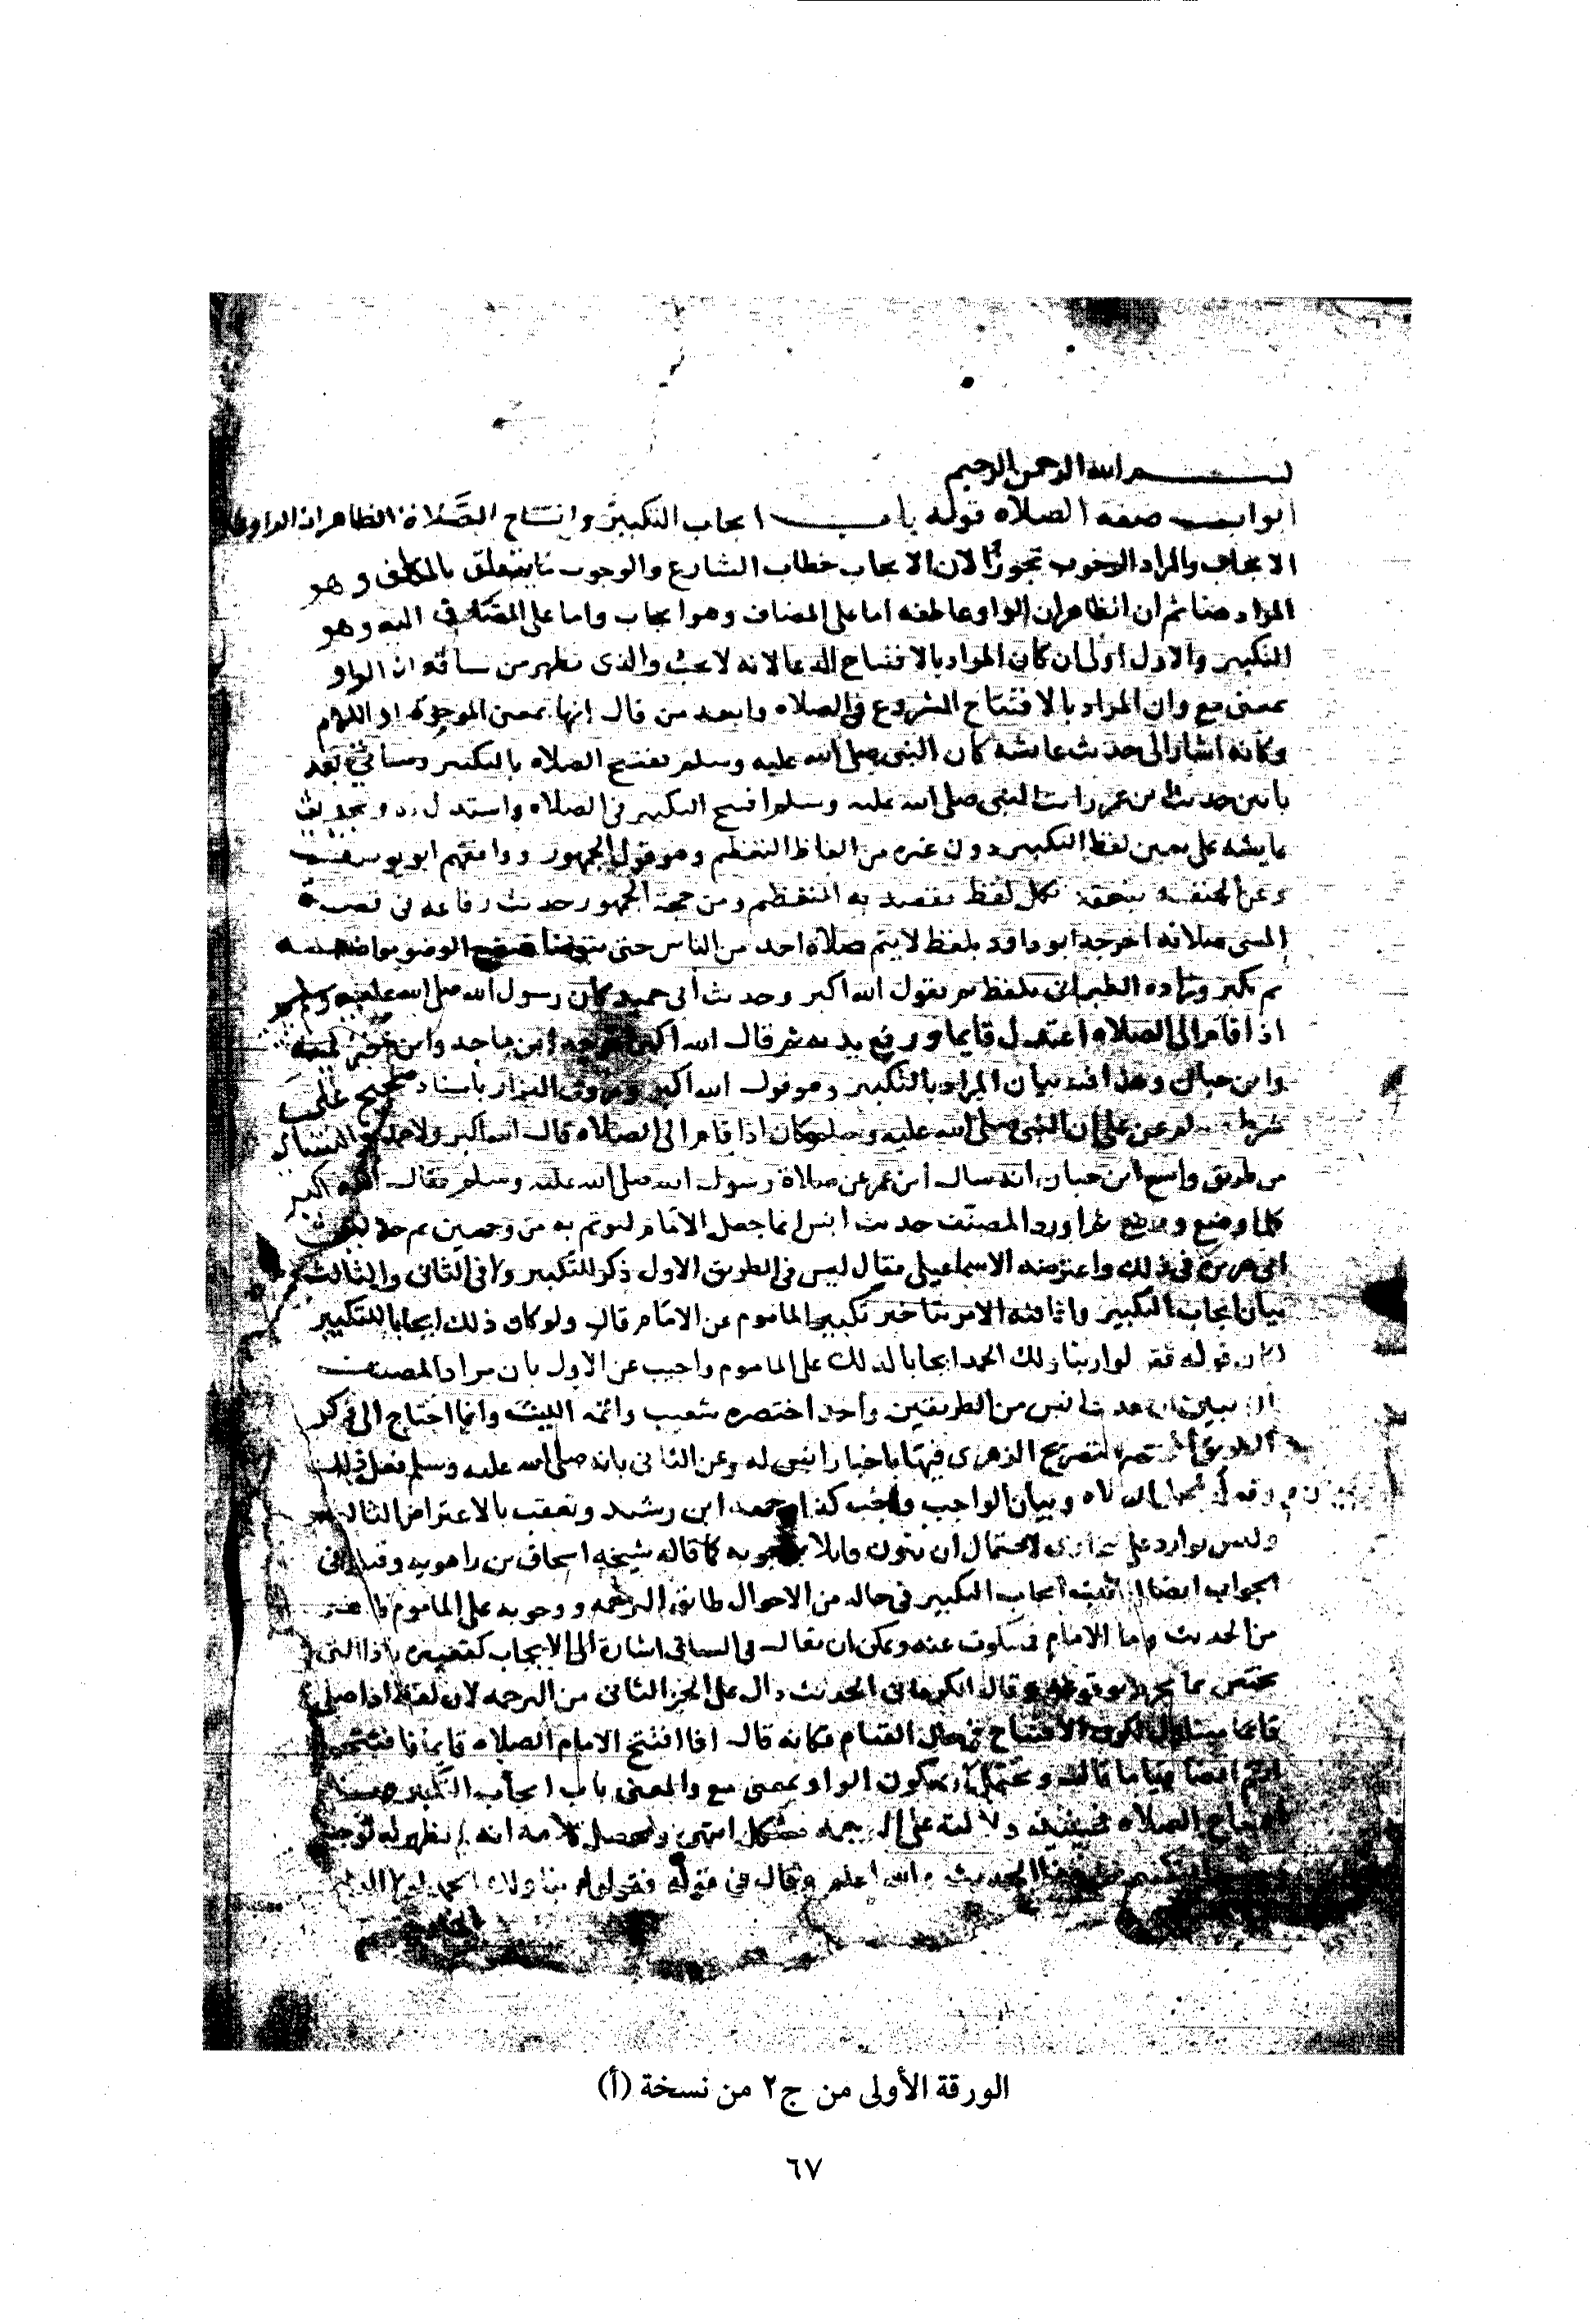 بسم الله الرحمن الرحيم
ابواب صفة الصلاه قوله باب ايجاب التكبير وافتتاح الصلاة الظاهر ان المراد
الايجاب والمراد الوجوب تجوزا لان الايجاب خطاب الشارع والوجوب ما يتعلق بالمكلف وهو
المراد هنا ثم ان الظاهر ان الواو عاطفه اما على المضاف وهو ايجاب واما على المضاف اليه وهو
التكبير والاول اولى ان كان المراد بالافتتاح الدعا لانه لا يجب والذى يظهر من سياقه ان الواو
بمعنى مع وان المراد بالافتتاح الشروع فى الصلاه وابعد من قال إنها بمعنى الموحدة او اللام
وكانه اشار الى حديث عايشه كان النبى صلى الله عليه وسلم يفتتح الصلاه بالتكبير وسياتي بعد
بابين حديث ابن عمر رايت النبى صلى الله عليه وسلم افتتح التكبير فى الصلاه واستدل به وبحديث
عايشه على تعين لفظ التكبير دون غيره من الفاظ التعظيم وهو قول الجمهور ووافقهم ابو يوسف
وعن الحنفيه ينعقد بكل لفظ يقصد به التعظيم ومن حجة الجمهور حديث رفاعه فى قصة
المسى صلاته اخرجه ابو داود بلفظ لا يتم صلاة احد من الناس حتى يتوضا فيضع الوضو مواضعه
ثم يكبر ورواه الطبرانى بلفظ ثم يقول الله اكبر وحديث أبى حميد كان رسول الله صلى الله عليه وسلم
اذا قام الى الصلاه اعتدل قايما ورفع يديه ثم قال الله اكبر اخرجه ابن ماجه وابن خزيمه
وابن حبان وهذا فيه بيان المراد بالتكبير وهو قول الله اكبر وروى البزار باسناد صحيح على
شرط مسلم عن على ان النبى صلى الله عليه وسلم كان اذا قام الى الصلاه قال الله اكبر ولاحمد والنسائى
من طريق واسع ابن حبان انه سال ابن عمر عن صلاة رسول الله صلى الله عليه وسلم فقال الله اكبر
كلما وضع ورفع ثم اورد المصنف حديث انس انما جعل الامام ليوتم به من وجهين ثم حديث
ابى هريرة فى ذلك واعترضه الاسماعيلى فقال ليس فى الطريق الاول ذكر للتكبير ولا فى الثانى والثالث
بيان ايجاب التكبير وانما فيه الامر بتاخير تكبير الماموم عن الامام قال ولو كان ذلك ايجابا للتكبير
لكان قوله فقولوا ربنا ولك الحمد ايجابا لذلك على الماموم واجيب عن الاول بان مراد المصنف
ان يبين ان حديث انس من الطريقين واحد اختصره شعيب واتمه الليث وانما احتاج الى ذكر
الطريق المختصره لتصريح الزهرى فيها باخبار انس له وعن الثانى بانه صلى الله عليه وسلم فعل ذلك
وفعله بيان لمجمل الصلاه وبيان الواجب واجب كذا وجهه ابن رشيد وتعقب بالاعتراض الثالث
وليس بوارد على البخارى لاحتمال ان يكون قايلا بوجوبه كما قاله شيخه اسحاق بن راهويه وقيل فى
الجواب ايضا اذا ثبت ايجاب التكبير فى حاله من الاحوال طابق الترجمه ووجوبه على الماموم ظاهر
من الحديث واما الامام فمسكوت عنه ويمكن ان يقال فى السياق اشارة الى الايجاب لتعبيره باذا التى
تختص بما يجزم بوقوعه وقال الكرمانى الحديث دال على الجز الثانى من الترجمه لان لفظ اذا صلى
قايما متناول لكون الافتتاح فى حال القيام فكانه قال اذا افتتح الامام الصلاه قايما فافتتحوا
انتم ايضا قياما قال ويحتمل ان يكون الواو بمعنى مع والمعنى باب ايجاب التكبير عند
افتتاح الصلاه فحينئذ دلالته على الترجمه مشكل انتهى ومحصل كلامه انه لم يظهر له توجيه
التكبير من هذا الحديث والله اعلم وقال فى قوله فقولوا ربنا ولك الحمد لولا الدليل
الورقة الأولى من ج٢ من نسخة (أ)
٦٧